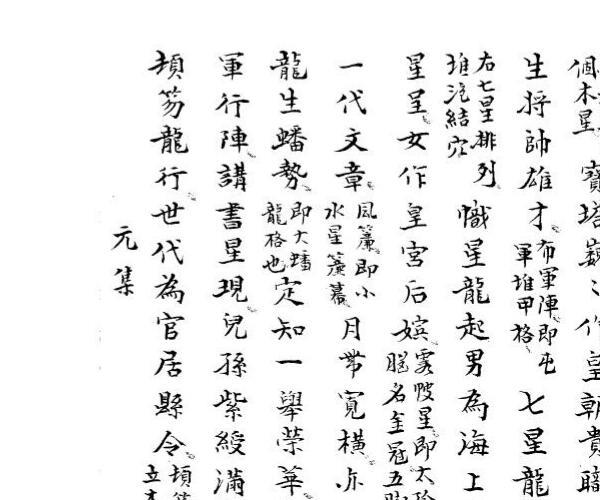 個木星寶塔巍〻作皇朝貴職
生將帥雄才布軍陣即屯軍堆甲格七星龍
右七星排列堆泡結穴幟星龍起男為海上
星呈女作皇宮后嬪帔星即太腦名金冠五
一代文章風簾即小水星簾幕月帶寬橫亦
龍生蟠勢即大蟠龍格也定知一舉榮華
軍行陣講書星現兒孫紫綬滿
頓笏龍行世代為官居縣令頓立
元集